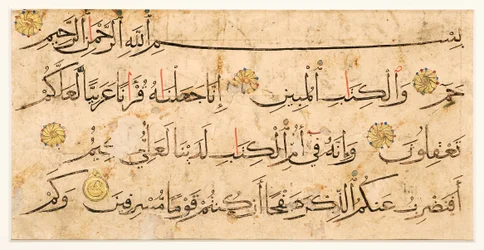 بِسْمِ اللَّهِ الرَّحْمَٰنِ الرَّحِيمِ
حم وَالْكِتَٰبِ الْمُبِينِ إِنَّا جَعَلْنَٰهُ قُرْآنًا عَرَبِيًّا لَعَلَّكُمْ
تَعْقِلُونَ وَإِنَّهُ فِي أُمِّ الْكِتَٰبِ لَدَيْنَا لَعَلِيٌّ حَكِيمٌ
أَفَنَضْرِبُ عَنْكُمُ الذِّكْرَ صَفْحًا أَنْ كُنْتُمْ قَوْمًا مُسْرِفِينَ وَكَمْ